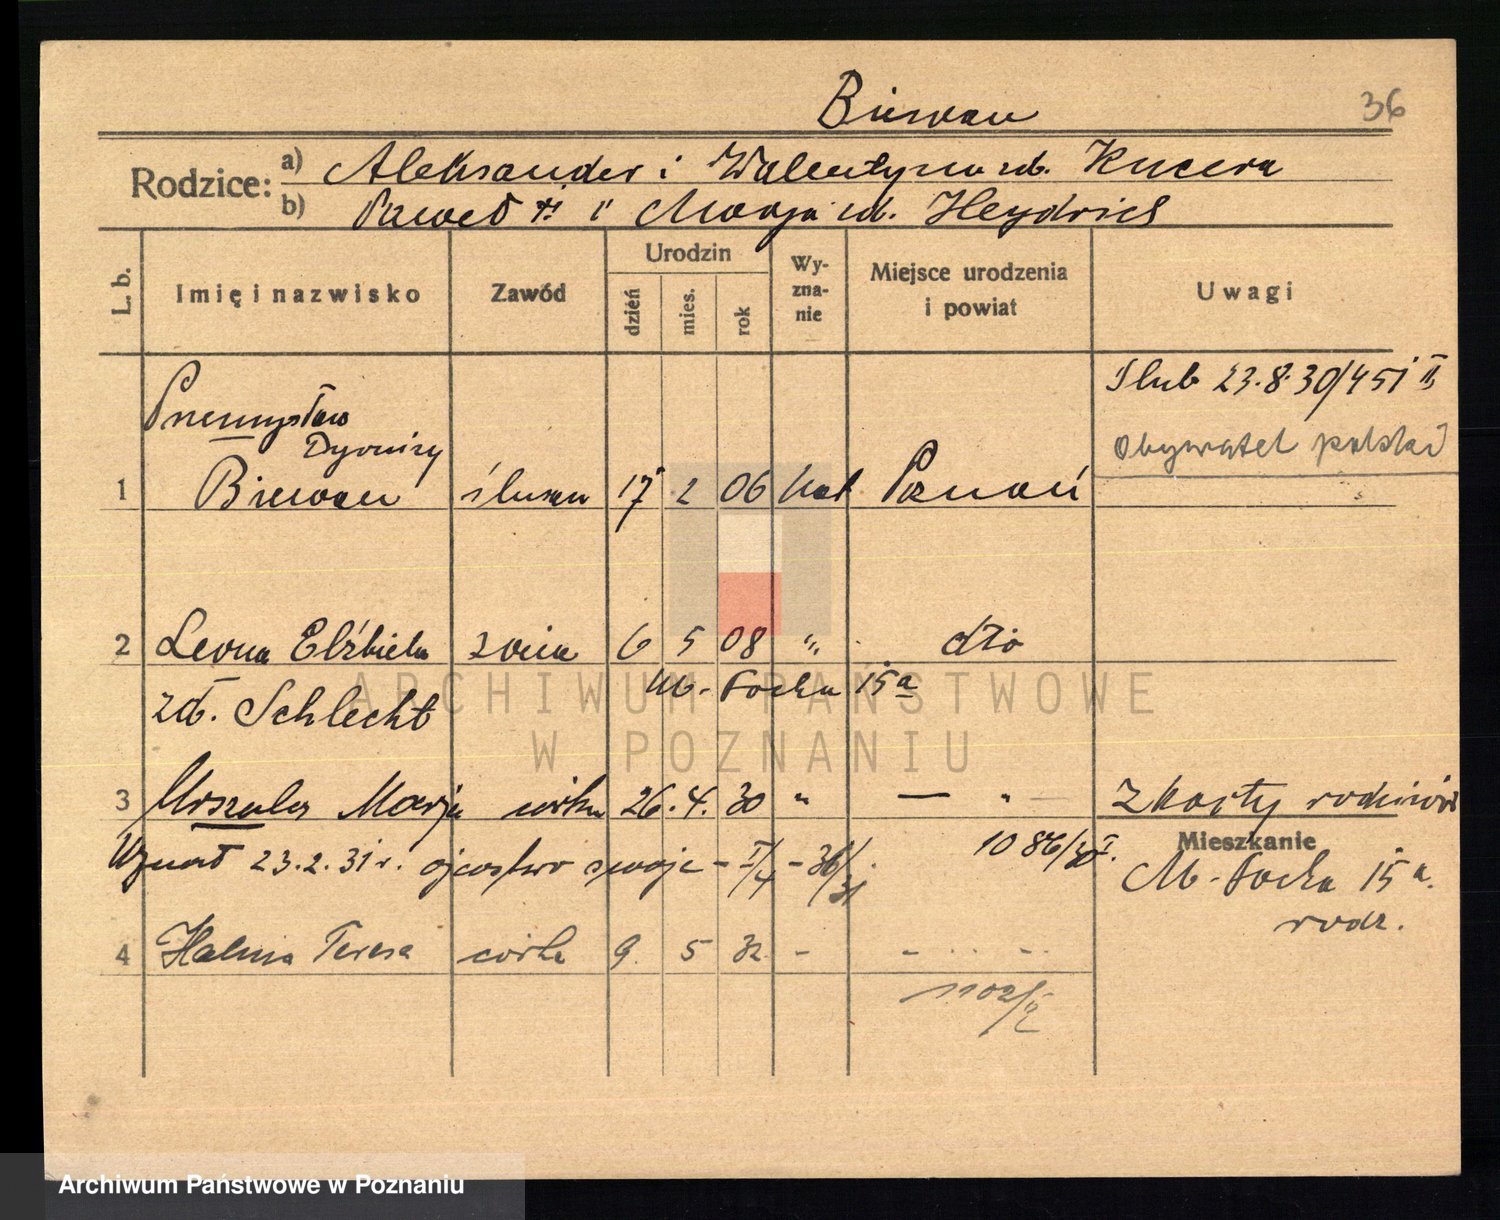 Biewau
36
Rodzice: a) Aleksander i Walentyna zd. Kucera
b) Paweł i Marja zd. Heydrich
L. b.
Imię i nazwisko
Zawód
Urodzin
dzień
mies.
rok
Wy-
zna-
nie
Miejsce urodzenia
i powiat
Uwagi
Ślub 23.8.30/451 II
obywatel polski
Przemysław
Dyonizy
1 Biewau ślusarz 17 2 06 kat Poznań
2 Leona Elżbieta żona 6 5 08 " dto
zd. Schlecht
M. Focha 15a
3 Urszula Marja córka 26. 4. 30 " — " —
Z karty rodziców
Uznał 23.2.31 r. ojcostwo swoje - I/4 - 36/31
1086/30 I.
Mieszkanie
M. Focha 15a.
rodz.
4 Halina Teresa córka 9. 5 32 - - - -
1102/I
ARCHIWUM PAŃSTWOWE
W POZNANIU
Archiwum Państwowe w Poznaniu